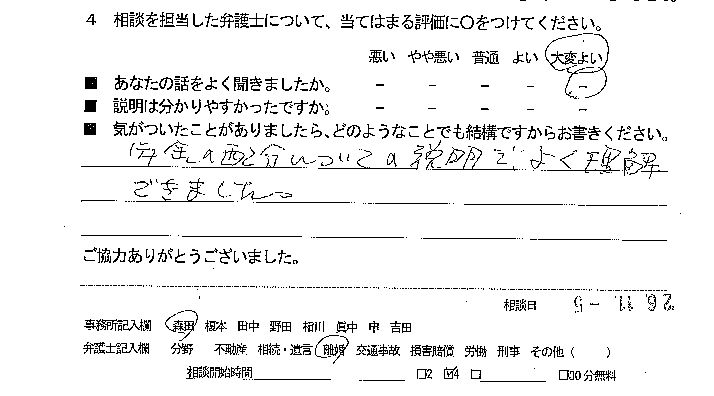 4 相談を担当した弁護士について、当てはまる評価に〇をつけてください。
悪い やや悪い 普通 よい 大変よい
■ あなたの話をよく聞きましたか。 － － － － －
■ 説明は分かりやすかったですか。 － － － － －
■ 気がついたことがありましたら、どのようなことでも結構ですからお書きください。
年金の配分についての説明で、よく理解
できました。
ご協力ありがとうございました。
相談日 26.11.-5
事務所記入欄 森田 榎本 田中 野田 相川 眞中 申 吉田
弁護士記入欄 分野 不動産 相続・遺言 離婚 交通事故 損害賠償 労働 刑事 その他（ ）
相談開始時間 □2 ☑4 □ □30分無料